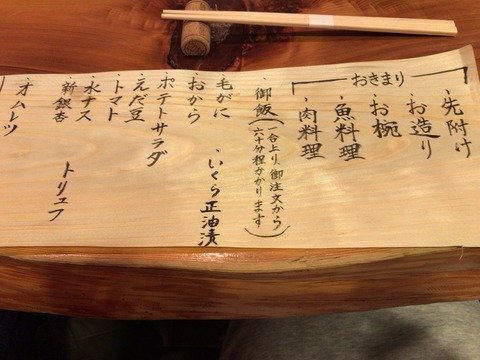 おきまり
・先附け
・お造り
・お椀
・魚料理
・肉料理
・御飯(一合上り、御注文から
六十分程かかります)
・毛がに ・いくら正油漬
・おから
・ポテトサラダ
・えだ豆
・トマト
・水ナス
・新銀杏 トリュフ
・オムレツ